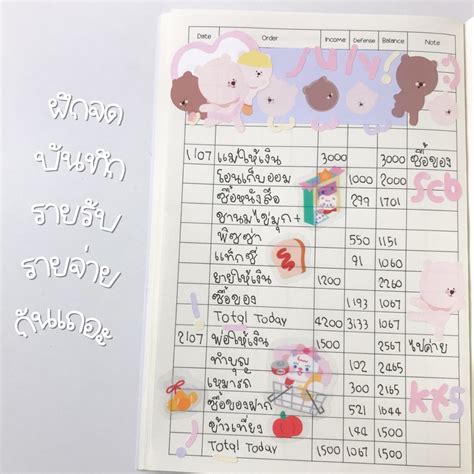 ฝึกจด
บันทึก
รายรับ
รายจ่าย
กันเถอะ
Date Order Income Defense Balance Note
July!
1/07 แม่ให้เงิน 3000 3000 ซื้อของ
โอนเก็บออม 1000 2000 scb
ซื้อหนังสือ 299 1701
ชานมไข่มุก+
พิซซ่า 550 1151
แท็กซี่ 91 1060
ยายให้เงิน 1200 2260
ซื้อของ 1193 1067
Total Today 4200 3133 1067
2/07 พ่อให้เงิน 1500 2567 ไปค่าย
ทำบุญ 102 2465
เหมารถ 300 2165
ซื้อของฝาก 521 1644
ข้าวเที่ยง 144 1500
Total Today 1500 1067 1500